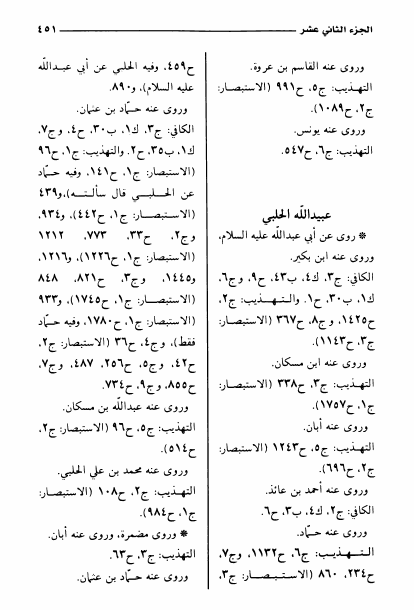 الجزء الثاني عشر
٤٥١
وروى عنه القاسم بن عروة.
التهذيب: ج٥، ح٩٩١ (الاستبصار:
ج٢، ح١٠٨٩).
وروى عنه يونس.
التهذيب: ج٦، ح٥٤٧.
عبيدالله الحلبي
* روى عن أبي عبدالله عليه السلام،
وروى عنه ابن بكير.
الكافي: ج٣، ك٤، ب٤٣، ح٩، وج٦،
ك١، ب٣٠، ح١. والتهذيب: ج٢،
ح١٤٢٥، وج٨، ح٣٦٧ (الاستبصار:
ج٣، ح١١٤٣).
وروى عنه ابن مسكان.
التهذيب: ج٣، ح٣٣٨ (الاستبصار:
ج١، ح١٧٥٧).
وروى عنه أبان.
التهذيب: ج٥، ح١٢٤٣ (الاستبصار:
ج٢، ح٦٩٦).
وروى عنه أحمد بن عائذ.
الكافي: ج٢، ك٤، ب٣، ح٦.
وروى عنه حمّاد.
التهذيب: ج٦، ح١١٣٢، وج٧،
ح٢٣٤، ٨٦٠ (الاستبصار: ج٣،
ح٤٥٩، وفيه الحلبي عن أبي عبدالله
عليه السلام)، و٨٩٠.
وروى عنه حمّاد بن عثمان.
الكافي: ج٣، ك١، ب٣٠، ح٤، وج٧،
ك١، ب٣٥، ح٢. والتهذيب: ج١، ح٩٦
(الاستبصار: ج١، ح١٤١، وفيه حمّاد
عن الحلبي قال سألته)، و٤٣٩
(الاستبصار: ج١، ح٤٤٢)، و٩٣٤،
وج٢، ح٣٣، ٧٧٣، ١٢١٢
(الاستبصار: ج١، ح١٢٢٦)، و١٢١٦،
و١٤٤٥، وج٣، ح٨٢١، ٨٤٨
(الاستبصار: ج١، ح١٧٤٥)، و٩٣٣
(الاستبصار: ج١، ح١٧٨٠، وفيه حمّاد
فقط)، وج٤، ح٣٦ (الاستبصار: ج٢،
ح٤٢، وج٥، ح٢٥٦، ٤٨٧، وج٧،
ح٨٥٥، وج٩، ح٧٣٤.
وروى عنه عبدالله بن مسكان.
التهذيب: ج٥، ح٩٦ (الاستبصار: ج٢،
ح٥١٤).
وروى عنه محمد بن علي الحلبي.
التهذيب: ج٢، ح١٠٨ (الاستبصار:
ج١، ح٩٨٤).
* وروى مضمرة، وروى عنه أبان.
التهذيب: ج٣، ح٦٣.
وروى عنه حمّاد بن عثمان.